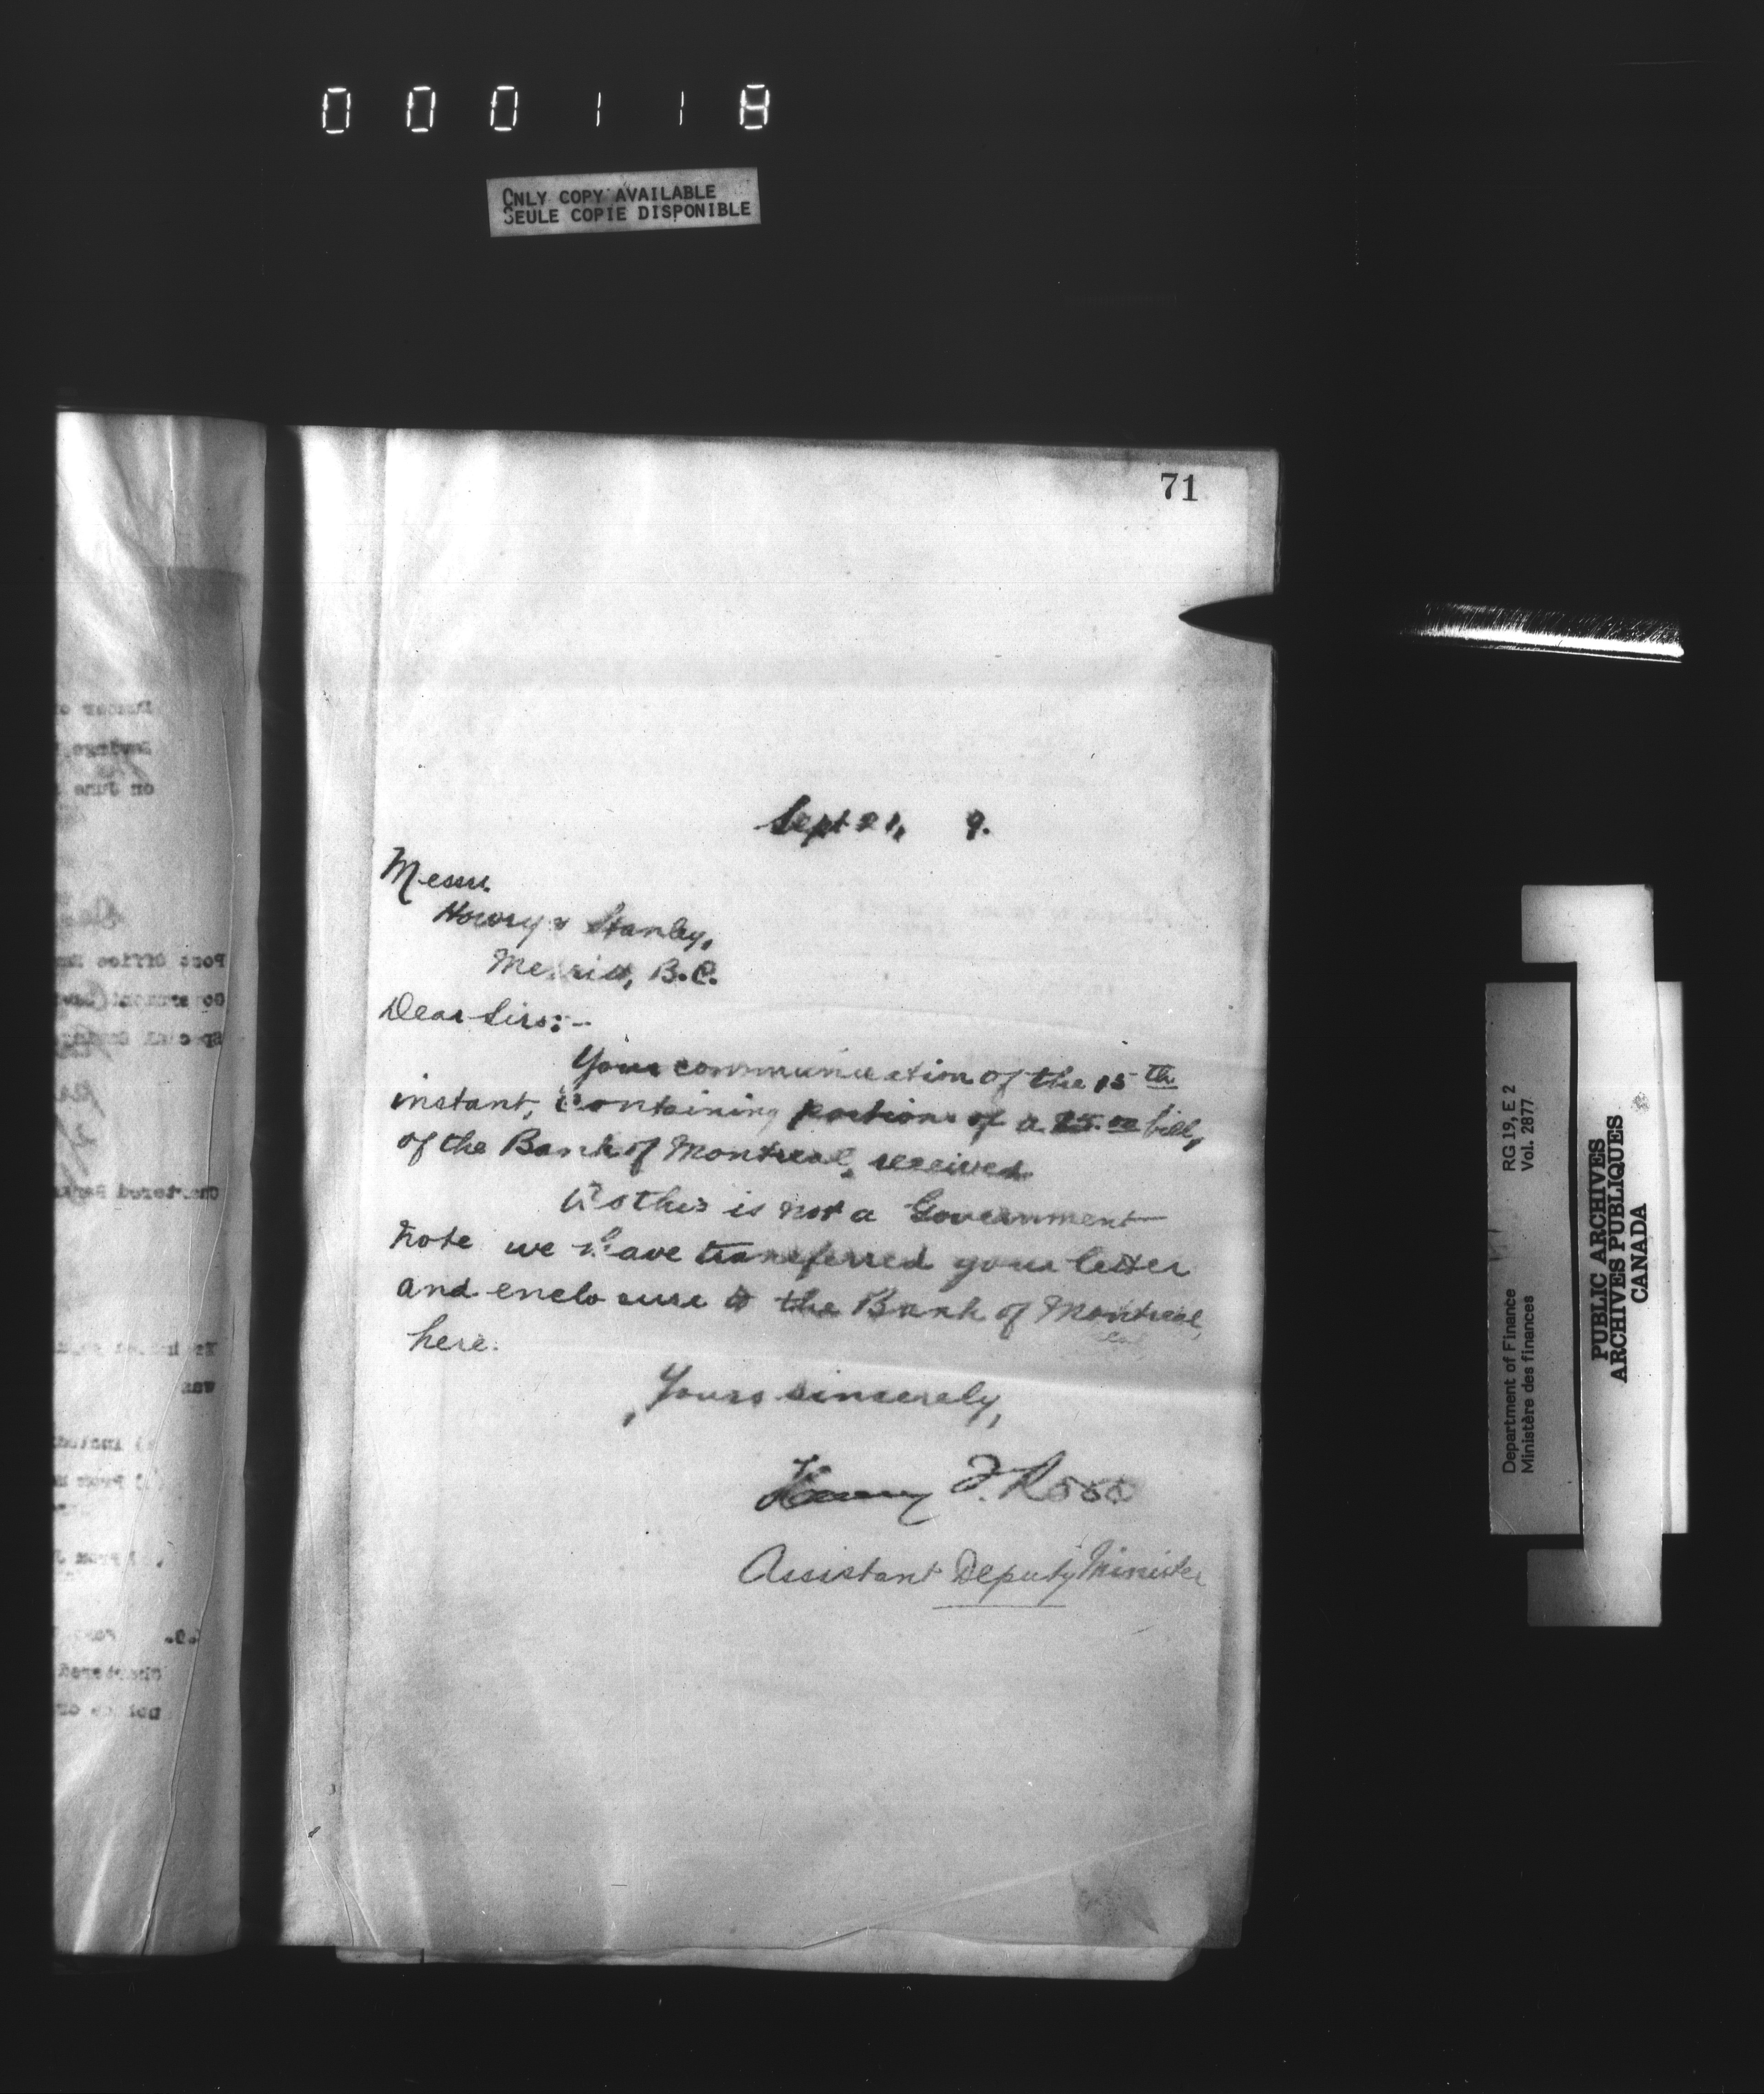 000118
ONLY COPY AVAILABLE
SEULE COPIE DISPONIBLE
71
Sept 21, 9.
Messrs.
Howry & Stanley,
Merritt, B.C.
Dear Sirs:-
Your communication of the 15th
instant, containing portions of a bill,
of the Bank of Montreal, received.
As this is not a Government
note we have transferred your letter
and enclosure to the Bank of Montreal,
here.
Yours sincerely,
Henry T. Ross
Assistant Deputy Minister
Department of Finance RG 19, E 2
Ministère des finances Vol. 2877
PUBLIC ARCHIVES
ARCHIVES PUBLIQUES
CANADA